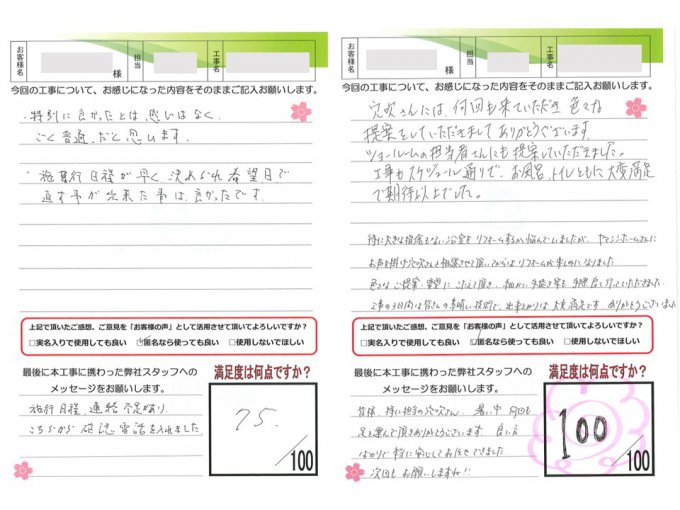 お客様名
様
担当
工事名
今回の工事について、お感じになった内容をそのままご記入お願いします。
・特別に良かったとは感じはなく、
ごく普通だと思います。
・施行日程が早く決められ希望日で
直す事が出来た事は良かったです。
上記で頂いたご感想、ご意見を「お客様の声」として活用させて頂いてよろしいですか？
□実名入りで使用しても良い ☑匿名なら使っても良い □使用しないでほしい
最後に本工事に携わった弊社スタッフへの
メッセージをお願いします。
施行日程、連絡不足があり、
こちらから確認電話を入れました
満足度は何点ですか？
75.
/100
お客様名
様
担当
工事名
今回の工事について、お感じになった内容をそのままご記入お願いします。
穴吹さんには、何回も来ていただき色々な
提案をしていただきましてありがとうございます。
ショールームの担当者さんにも提案していただきました。
工事もスケジュール通りで、お風呂、トイレともに大変満足
で期待以上でした。
特に大きな損傷もない浴室をリフォームするか悩んでいましたが、ヤマシンホームさんに
お声を掛け穴吹さんと相談させて頂いてからはリフォームが楽しみになりました
色々なご提案・要望にこたえて頂き、細かい手続き等も手際良く行っていただきました
工事の3日間は皆さんの素晴しい技術で、出来上がりは大変満足です ありがとうございました
上記で頂いたご感想、ご意見を「お客様の声」として活用させて頂いてよろしいですか？
□実名入りで使用しても良い ☑匿名なら使っても良い □使用しないでほしい
最後に本工事に携わった弊社スタッフへの
メッセージをお願いします。
皆様、特に担当の穴吹さん、暑い中何回も
足を運んで頂きありがとうございます 良い方
ばかりで 安心してお任せできました
次回もお願いしますね!!
満足度は何点ですか？
100
/100